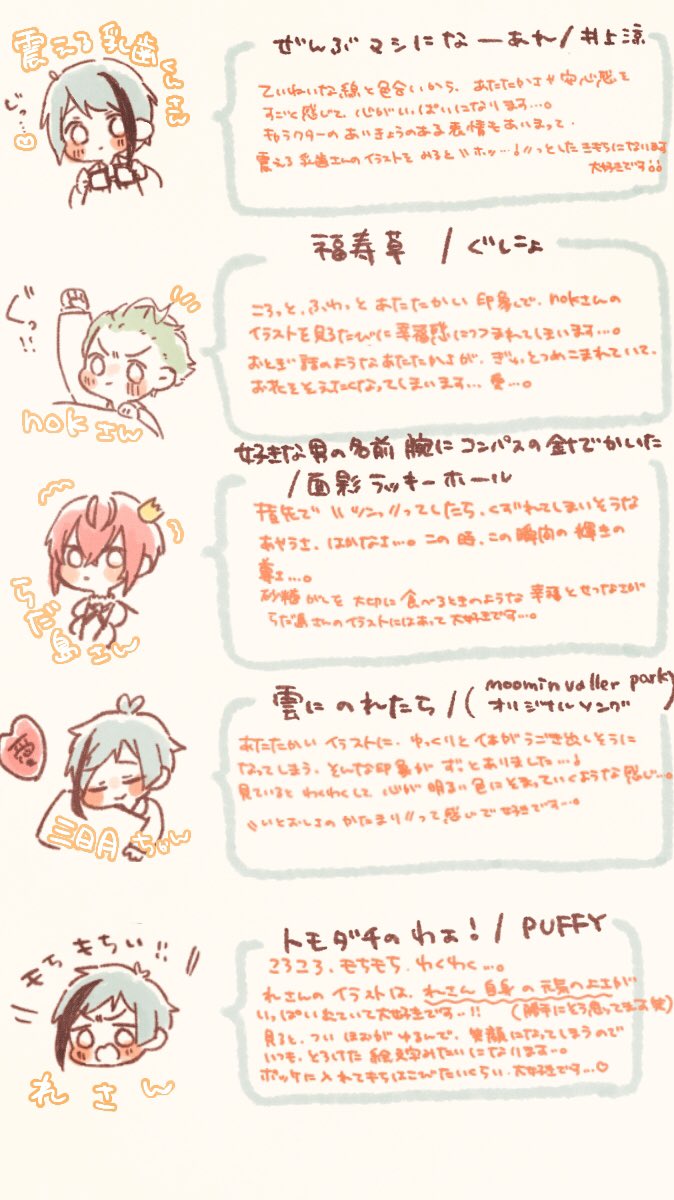 震える乳歯くんさん
じっ…
ぜんぶ マシにな ーあれ / 井上涼
ていねいな線と色合いから、あたたかさや安心感を
すごく感じて、心がいっぱいになります…。
キャラクターの あいきょうのある 表情もあいまって、
震える乳歯さんのイラストを みると〝ホッ…!〟っとした きもちになります
大好きです!!
福寿草 / ぐしこよ
ぐっ!!
nokさん
ころっと、ふわっと あたたかい 印象で、nokさんの
イラストを見るたびに 幸福感につつまれてしまいます…。
おとぎ話のような あたたかさが、ぎゅっとつめこまれていて、
お花をそえたくなってしまいます… 愛…。
好きな男の名前 腕に コンパスの針でかいた
/ 面影ラッキーホール
らだ島さん
指先で 〝ツン〟ってしたら、くずれてしまいそうな
あやうさ、はかなさ…。この時、この瞬間の 輝きの
尊さ…。
砂糖がしを 大切に 食べるときのような 幸福と せつなさが
らだ島さんのイラストにはあって 大好きです…。
雲に のれたら / ( moomin valler parky
オリジナルソング )
三日月ちゃん
あたたかい イラストに、ゆっくりと 体が うごき出しそうに
なってしまう、そんな印象が ずっとありました…!
見ていると わくわくして、心が 明るい 色に そまっていくような 感じ…。
〝いとおしさの かたまり〟って 感じで 好きです…。
トモダチの わぉ! / PUFFY
もちもちぃ!!
れさん
コロコロ、もちもち、わくわく…。
れさんの イラストは、れさん 自身 の 元気のよさが
いっぱい出ていて 大好きです…!! (勝手にそう思ってます笑)
見ると、つい ほおが ゆるんで、笑顔になってしまうので
いつも、とろけた 絵文字みたいになります…。
ポッケに 入れて もちはこびたいくらい、大好きです…♡